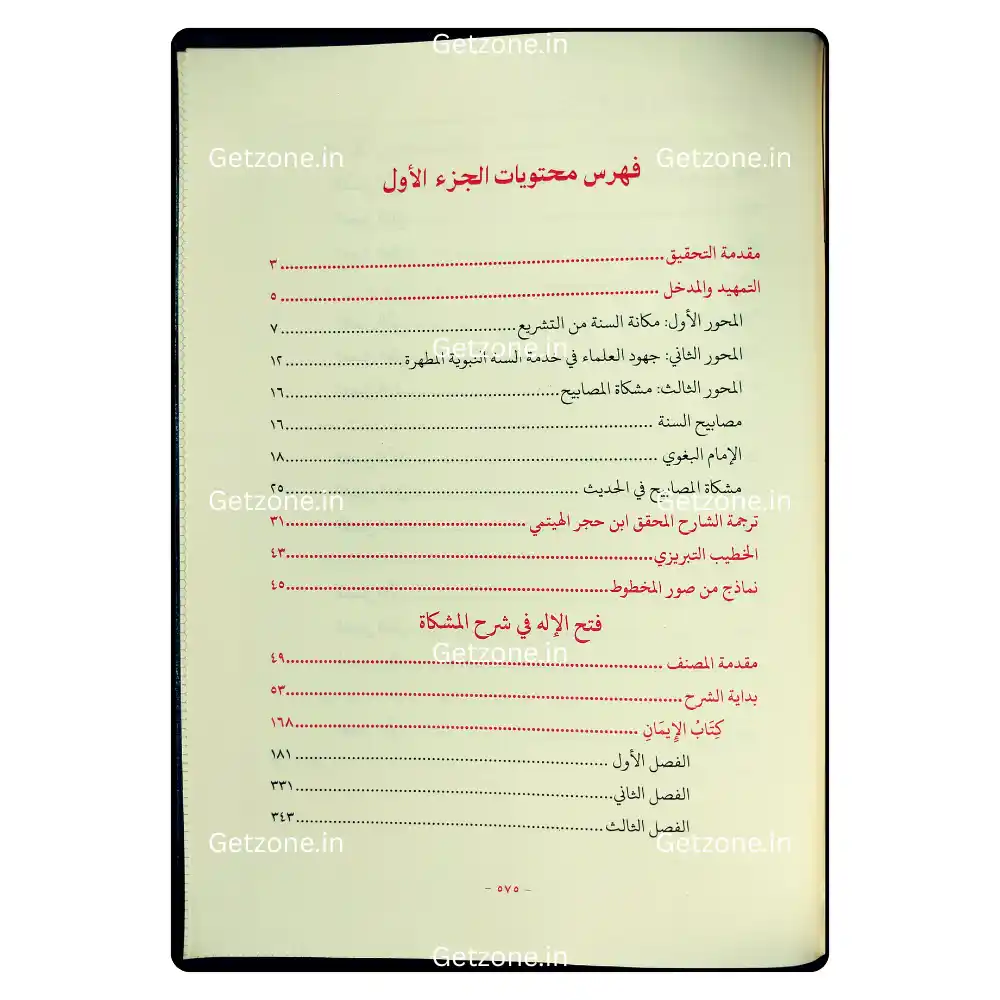 Getzone.in
Getzone.in Getzone.in
فهرس محتويات الجزء الأول
مقدمة التحقيق ................ ٣
التمهيد والمدخل ................ ٥
المحور الأول: مكانة السنة من التشريع ................ ٧
Getzone.in
المحور الثاني: جهود العلماء في خدمة السنة النبوية المطهرة ................ ١٢
المحور الثالث: مشكاة المصابيح ................ ١٦
مصابيح السنة ................ ١٦
الإمام البغوي ................ ١٨
مشكاة المصابيح في الحديث ................ ٢٥
Getzone.in Getzone.in
ترجمة الشارح المحقق ابن حجر الهيتمي ................ ٣١
الخطيب التبريزي ................ ٤٣
نماذج من صور المخطوط ................ ٤٥
فتح الإله في شرح المشكاة
Getzone.in
مقدمة المصنف ................ ٤٩
بداية الشرح ................ ٥٣
كِتَابُ الإِيمَانِ ................ ١٦٨
الفصل الأول ................ ١٨١
الفصل الثاني ................ ٣٣١
الفصل الثالث ................ ٣٤٣
Getzone.in Getzone.in
- ٥٧٥ -
Getzone.in